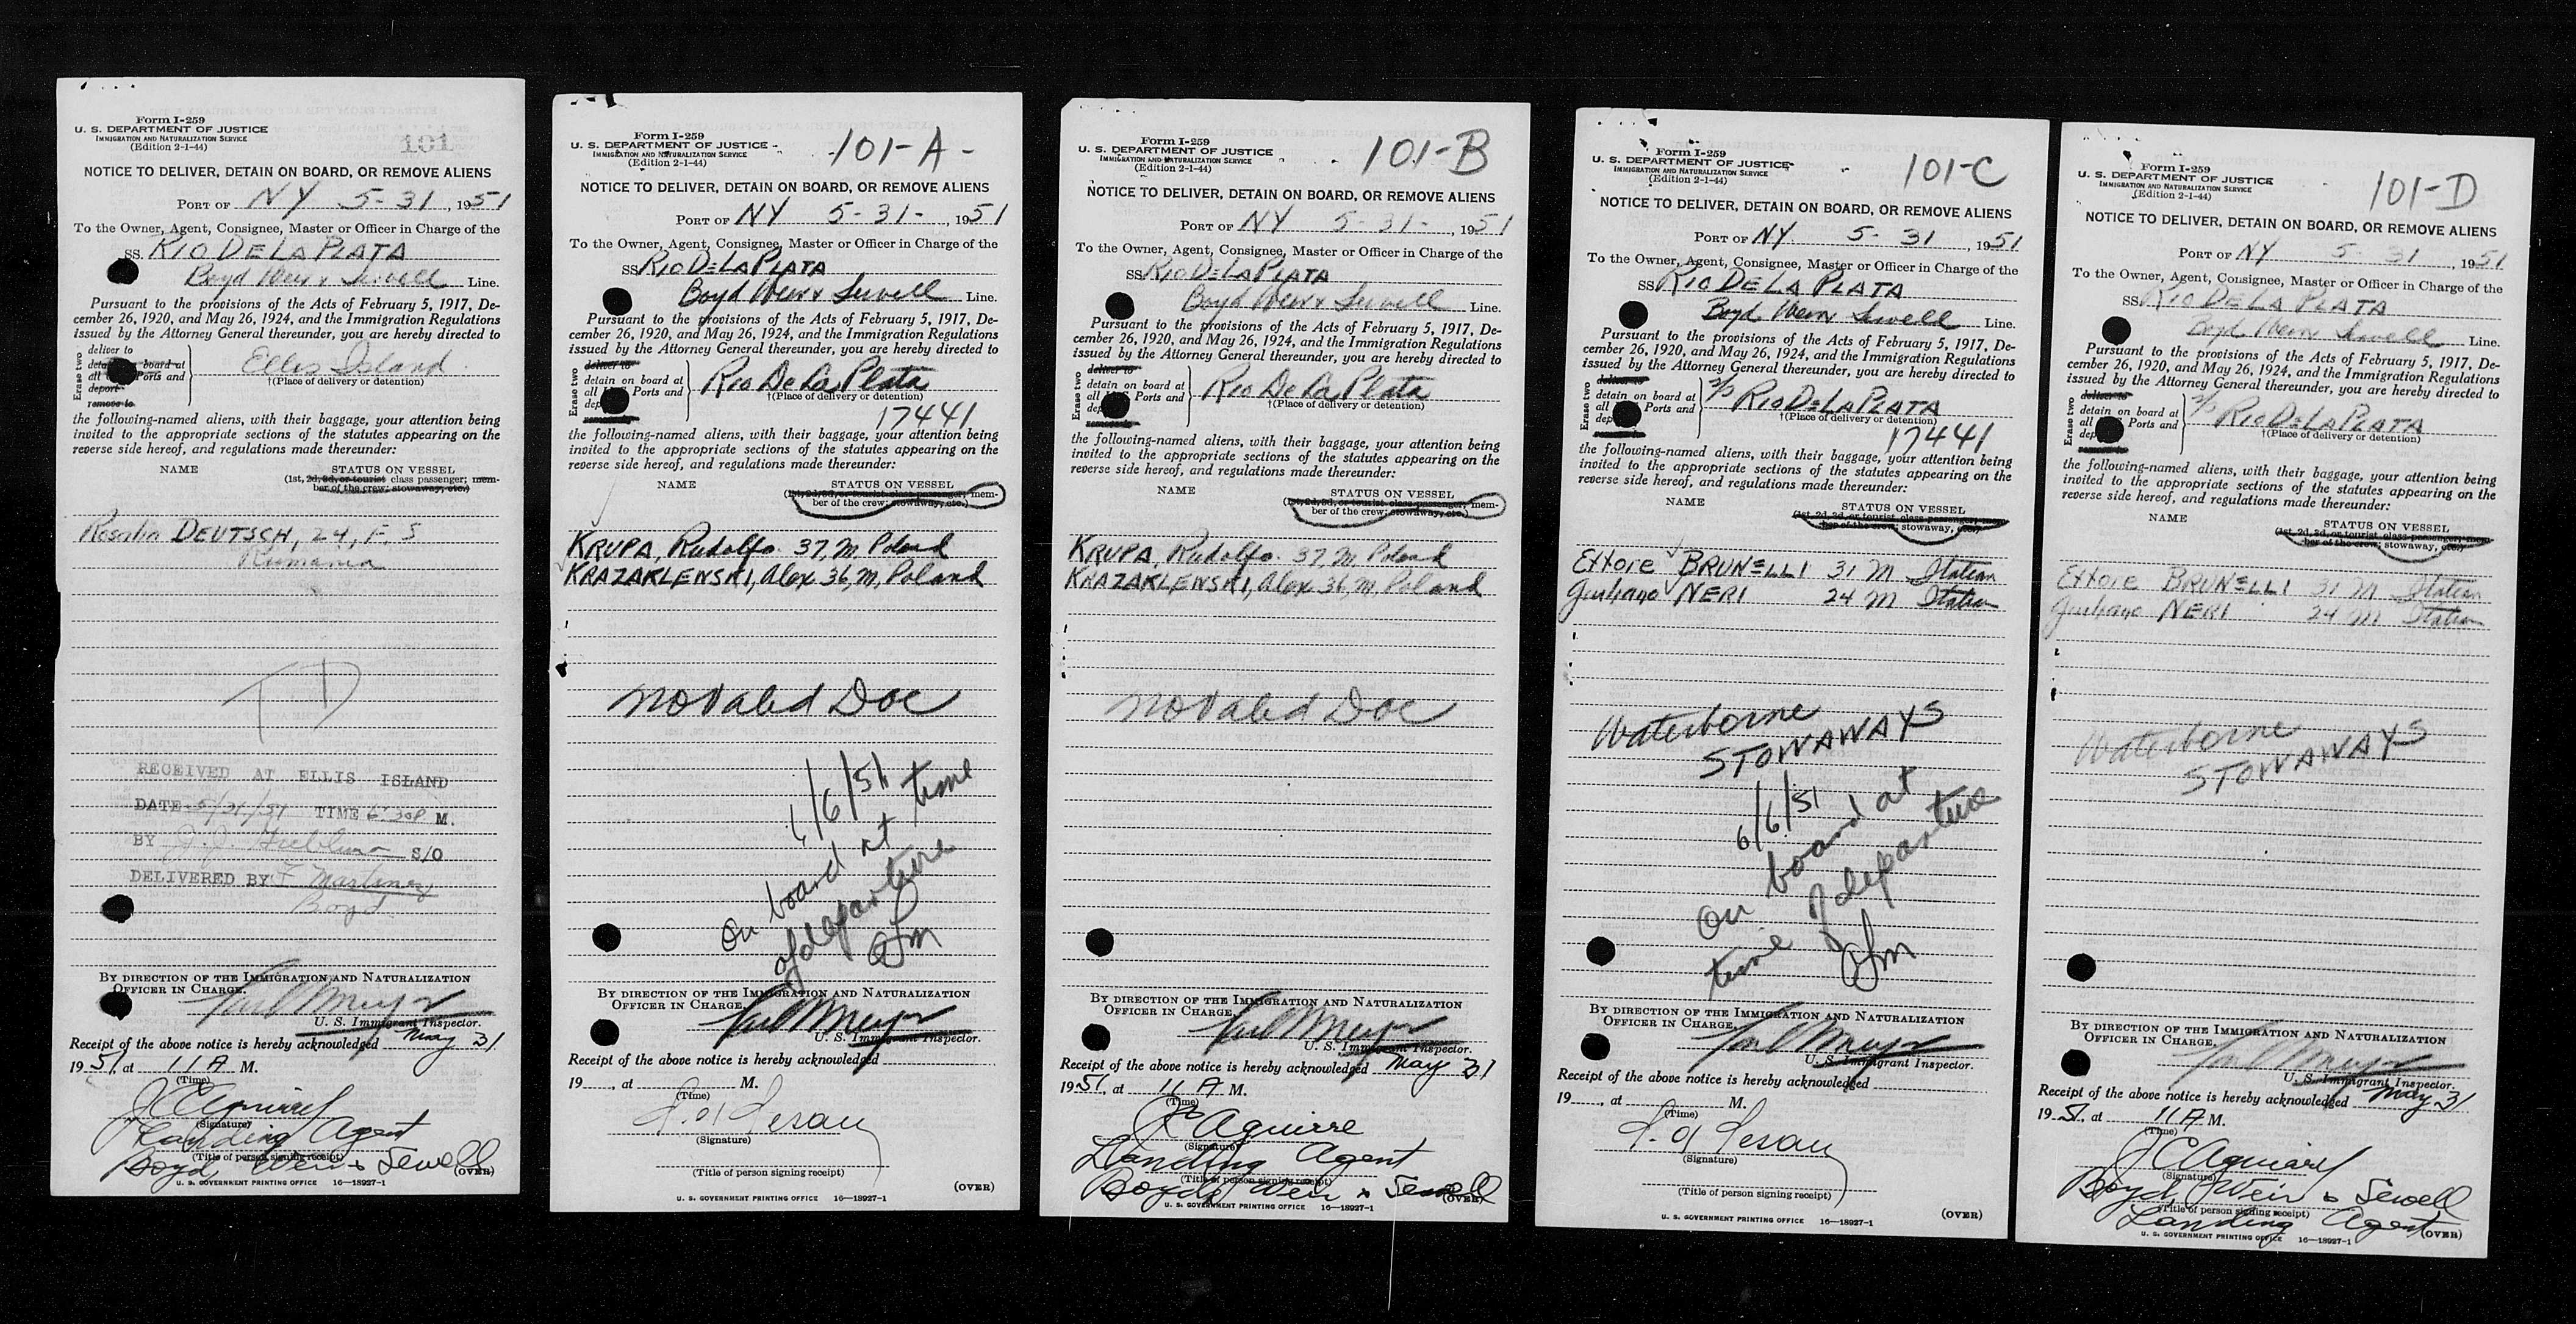 Form I-259
U. S. DEPARTMENT OF JUSTICE
IMMIGRATION AND NATURALIZATION SERVICE
(Edition 2-1-44)
101
NOTICE TO DELIVER, DETAIN ON BOARD, OR REMOVE ALIENS
PORT OF NY 5-31, 1951
To the Owner, Agent, Consignee, Master or Officer in Charge of the
SS. RIO DE LA PLATA
Boyd Weir & Sewell Line.
Pursuant to the provisions of the Acts of February 5, 1917, De-
cember 26, 1920, and May 26, 1924, and the Immigration Regulations
issued by the Attorney General thereunder, you are hereby directed to
Erase two
deliver to
board at
all Ports and
deport
remove to
Ellis Island
†(Place of delivery or detention)
the following-named aliens, with their baggage, your attention being
invited to the appropriate sections of the statutes appearing on the
reverse side hereof, and regulations made thereunder:
NAME STATUS ON VESSEL
(1st, 2d, 3d, or tourist class passenger; mem-
ber of the crew; stowaway, etc.)
Rosalia DEUTSCH, 24, F, S
Rumania
TD
RECEIVED AT ELLIS ISLAND
DATE 5/31/51 TIME M.
BY S/O
DELIVERED BY Martinez
Boyd
BY DIRECTION OF THE IMMIGRATION AND NATURALIZATION
OFFICER IN CHARGE.
U. S. Immigrant Inspector.
Receipt of the above notice is hereby acknowledged May 31
1951, at 11 A M.
(Time)
(Signature)
Landing Agent
(Title of person signing receipt)
Boyd Weir & Sewell
(OVER)
U. S. GOVERNMENT PRINTING OFFICE 16—18927-1
Form I-259
U. S. DEPARTMENT OF JUSTICE
IMMIGRATION AND NATURALIZATION SERVICE
(Edition 2-1-44)
101-A-
NOTICE TO DELIVER, DETAIN ON BOARD, OR REMOVE ALIENS
PORT OF NY 5-31-, 1951
To the Owner, Agent, Consignee, Master or Officer in Charge of the
SS RIO DE LA PLATA
Boyd Weir & Sewell Line.
Pursuant to the provisions of the Acts of February 5, 1917, De-
cember 26, 1920, and May 26, 1924, and the Immigration Regulations
issued by the Attorney General thereunder, you are hereby directed to
Erase two
deliver to
detain on board at
all Ports and
dep
remove to
Rio De La Plata
†(Place of delivery or detention)
17441
the following-named aliens, with their baggage, your attention being
invited to the appropriate sections of the statutes appearing on the
reverse side hereof, and regulations made thereunder:
NAME STATUS ON VESSEL
(1st, 2d, 3d, or tourist class passenger; mem-
ber of the crew; stowaway, etc.)
KRUPA, Rudolfo 37, M Poland
KRAZAKLEWSKI, Alex 36, M, Poland
No Valid Doc
6/6/51
On board at time
of departure
BY DIRECTION OF THE IMMIGRATION AND NATURALIZATION
OFFICER IN CHARGE.
U. S. Immigrant Inspector.
Receipt of the above notice is hereby acknowledged
19 , at M.
(Time)
(Signature)
(Title of person signing receipt)
(OVER)
U. S. GOVERNMENT PRINTING OFFICE 16—18927-1
Form I-259
U. S. DEPARTMENT OF JUSTICE
IMMIGRATION AND NATURALIZATION SERVICE
(Edition 2-1-44)
101-B
NOTICE TO DELIVER, DETAIN ON BOARD, OR REMOVE ALIENS
PORT OF NY 5-31-, 1951
To the Owner, Agent, Consignee, Master or Officer in Charge of the
SS RIO DE LA PLATA
Boyd Weir & Sewell Line.
Pursuant to the provisions of the Acts of February 5, 1917, De-
cember 26, 1920, and May 26, 1924, and the Immigration Regulations
issued by the Attorney General thereunder, you are hereby directed to
Erase two
deliver to
detain on board at
all Ports and
dep
remove to
Rio De La Plata
†(Place of delivery or detention)
the following-named aliens, with their baggage, your attention being
invited to the appropriate sections of the statutes appearing on the
reverse side hereof, and regulations made thereunder:
NAME STATUS ON VESSEL
(1st, 2d, 3d, or tourist class passenger; mem-
ber of the crew; stowaway, etc.)
KRUPA, Rudolfo 37, M Poland
KRAZAKLEWSKI, Alex 36, M, Poland
No Valid Doc
BY DIRECTION OF THE IMMIGRATION AND NATURALIZATION
OFFICER IN CHARGE.
U. S. Immigrant Inspector.
Receipt of the above notice is hereby acknowledged May 31
1951, at 11 A M.
(Time)
Aguirre
(Signature)
Landing Agent
(Title of person signing receipt)
Boyd Weir & Sewell
(OVER)
U. S. GOVERNMENT PRINTING OFFICE 16—18927-1
Form I-259
U. S. DEPARTMENT OF JUSTICE
IMMIGRATION AND NATURALIZATION SERVICE
(Edition 2-1-44)
101-C
NOTICE TO DELIVER, DETAIN ON BOARD, OR REMOVE ALIENS
PORT OF NY. 5-31, 1951
To the Owner, Agent, Consignee, Master or Officer in Charge of the
SS RIO DE LA PLATA
Boyd Weir Sewell Line.
Pursuant to the provisions of the Acts of February 5, 1917, De-
cember 26, 1920, and May 26, 1924, and the Immigration Regulations
issued by the Attorney General thereunder, you are hereby directed to
Erase two
deliver to
detain on board at
all Ports and
dep
remove to
S/S RIO DE LA PLATA
†(Place of delivery or detention)
17441
the following-named aliens, with their baggage, your attention being
invited to the appropriate sections of the statutes appearing on the
reverse side hereof, and regulations made thereunder:
NAME STATUS ON VESSEL
(1st, 2d, 3d, or tourist class passenger; mem-
ber of the crew; stowaway, etc.)
Ettore BRUNELLI 31 M Italian
Giuliano NERI 24 M Italian
Waterborne
STOWAWAYS
6/6/51
On board at
time of departure
BY DIRECTION OF THE IMMIGRATION AND NATURALIZATION
OFFICER IN CHARGE.
U. S. Immigrant Inspector.
Receipt of the above notice is hereby acknowledged
19 , at M.
(Time)
(Signature)
(Title of person signing receipt)
(OVER)
U. S. GOVERNMENT PRINTING OFFICE 16—18927-1
Form I-259
U. S. DEPARTMENT OF JUSTICE
IMMIGRATION AND NATURALIZATION SERVICE
(Edition 2-1-44)
101-D
NOTICE TO DELIVER, DETAIN ON BOARD, OR REMOVE ALIENS
PORT OF NY 5 31, 1951
To the Owner, Agent, Consignee, Master or Officer in Charge of the
SS RIO DE LA PLATA
Boyd Weir Sewell Line.
Pursuant to the provisions of the Acts of February 5, 1917, De-
cember 26, 1920, and May 26, 1924, and the Immigration Regulations
issued by the Attorney General thereunder, you are hereby directed to
Erase two
deliver to
detain on board at
all Ports and
dep
remove to
S/S RIO DE LA PLATA
†(Place of delivery or detention)
the following-named aliens, with their baggage, your attention being
invited to the appropriate sections of the statutes appearing on the
reverse side hereof, and regulations made thereunder:
NAME STATUS ON VESSEL
(1st, 2d, 3d, or tourist class passenger; mem-
ber of the crew; stowaway, etc.)
Ettore BRUNELLI 31 M Italian
Giuliano NERI 24 M Italian
Waterborne
STOWAWAYS
BY DIRECTION OF THE IMMIGRATION AND NATURALIZATION
OFFICER IN CHARGE.
U. S. Immigrant Inspector.
Receipt of the above notice is hereby acknowledged May 31
1951, at 11 A M.
(Time)
(Signature)
Boyd, Weir & Sewell
(Title of person signing receipt)
Landing Agent
(OVER)
U. S. GOVERNMENT PRINTING OFFICE 16—18927-1